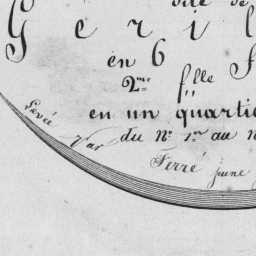 dite de
G e r i l
en 6
2me flle
en un quartie
du No 1er au n
Levée Par
Ferré jeune